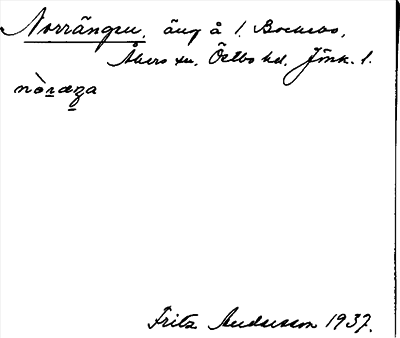 Norrängen, äng å 1 Bockebo,
Åkers sn. Östbo hd. Jönk. l.
nòræza
Fritz Andersson 1937.